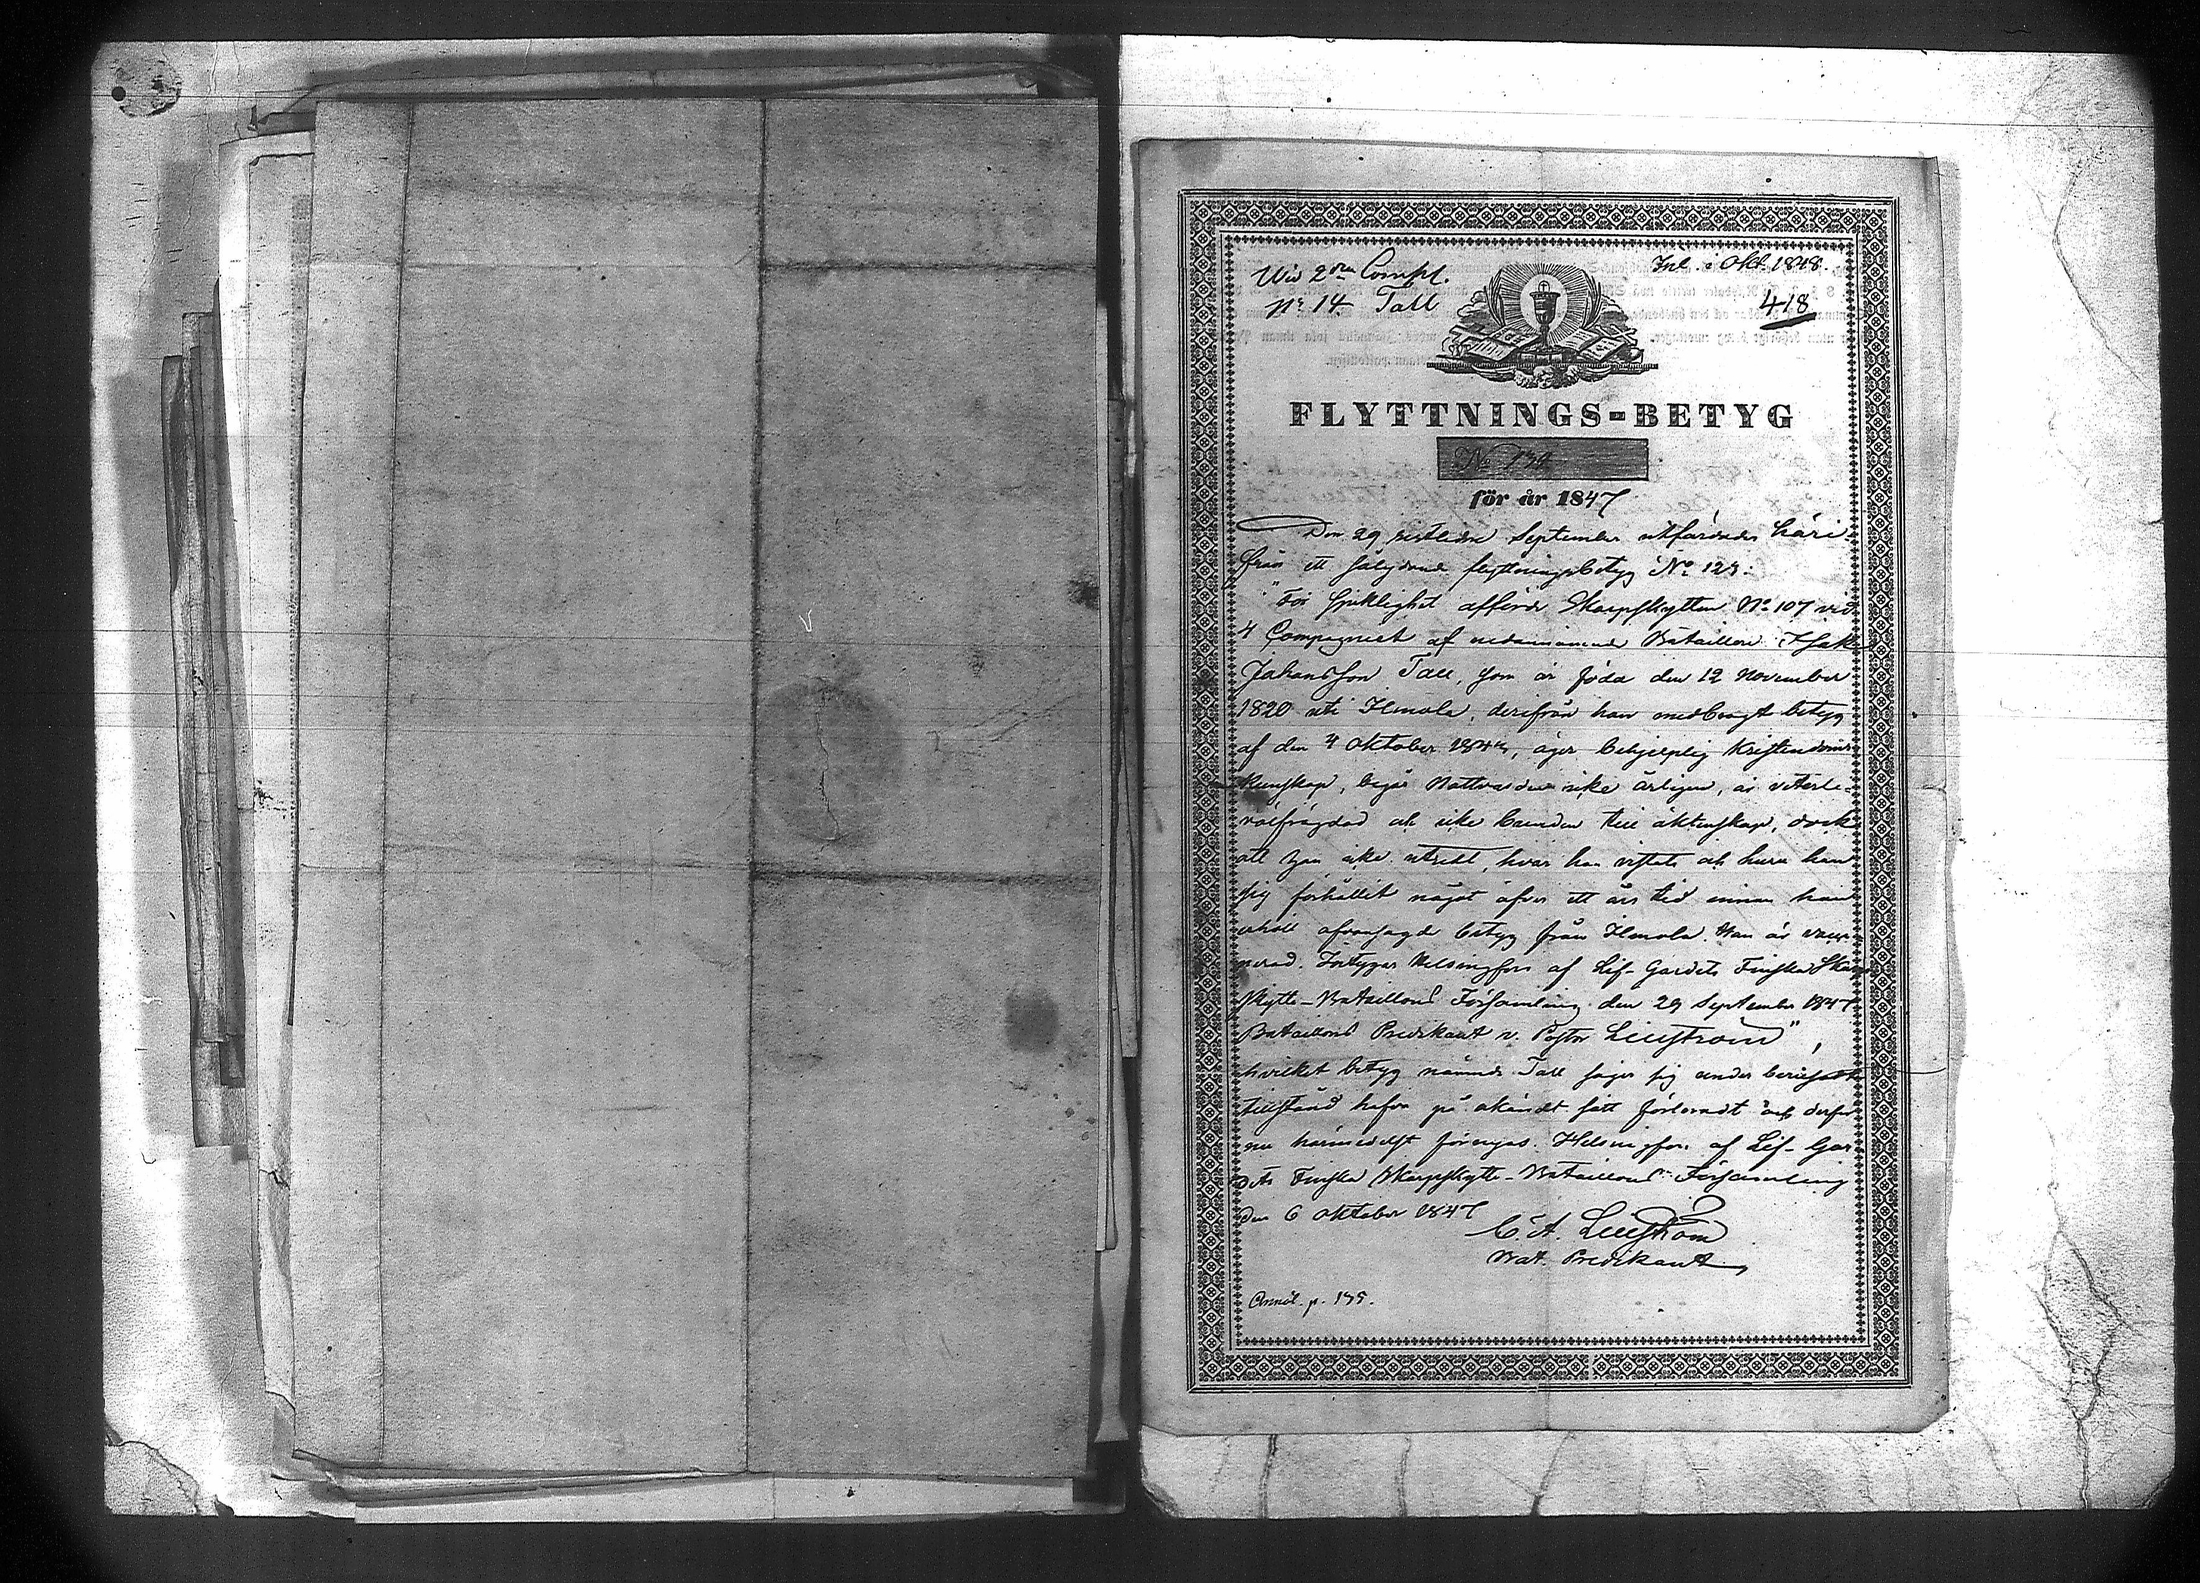 Inl. i Okt. 1848.
Wid 2dra Compt.
No 14. Tall
418
FLYTTNINGS-BETYG
No 134
för år 1847
Den 29 sistledne September utfärdades häri-
från ett sålydande flyttningsbetyg No 129:
"För sjuklighet afförde Skarpskytten No 107 vid
4 Compagniet af nedannämnde Bataillon Isak
Johansson Tall, som är född den 12 November
1820 uti Ilmola, derifrån han medbragt betyg
af den 4 Oktober 1844, äger behjelplig Kristendoms
kunskap, begår Nattvarden icke årligen, är
välfrägdad och icke bunden till äktenskap, dock
att han icke utredt, hvar han vistats och huru han
sig förhållit något öfver ett års tid innan han
erhöll ofvansagde betyg från Ilmola. Han är vacci-
nerad. Betygar Helsingfors af Lif-Gardets Finska Skarp-
skytte-Bataillons Församling den 29 September 1847
Bataillons Predikant v. Pastor Liljeström",
hvilket betyg nämnde Tall säger sig under
tillstånd hafva på okändt sätt förloradt och derför
nu härmedelst förnyas. Helsingfors af Lif-Gar-
dets Finska Skarpskytte-Bataillons Församling
den 6 Oktober 1847
C. A. Liljeström
Bat. Predikant
Annot. p. 175.